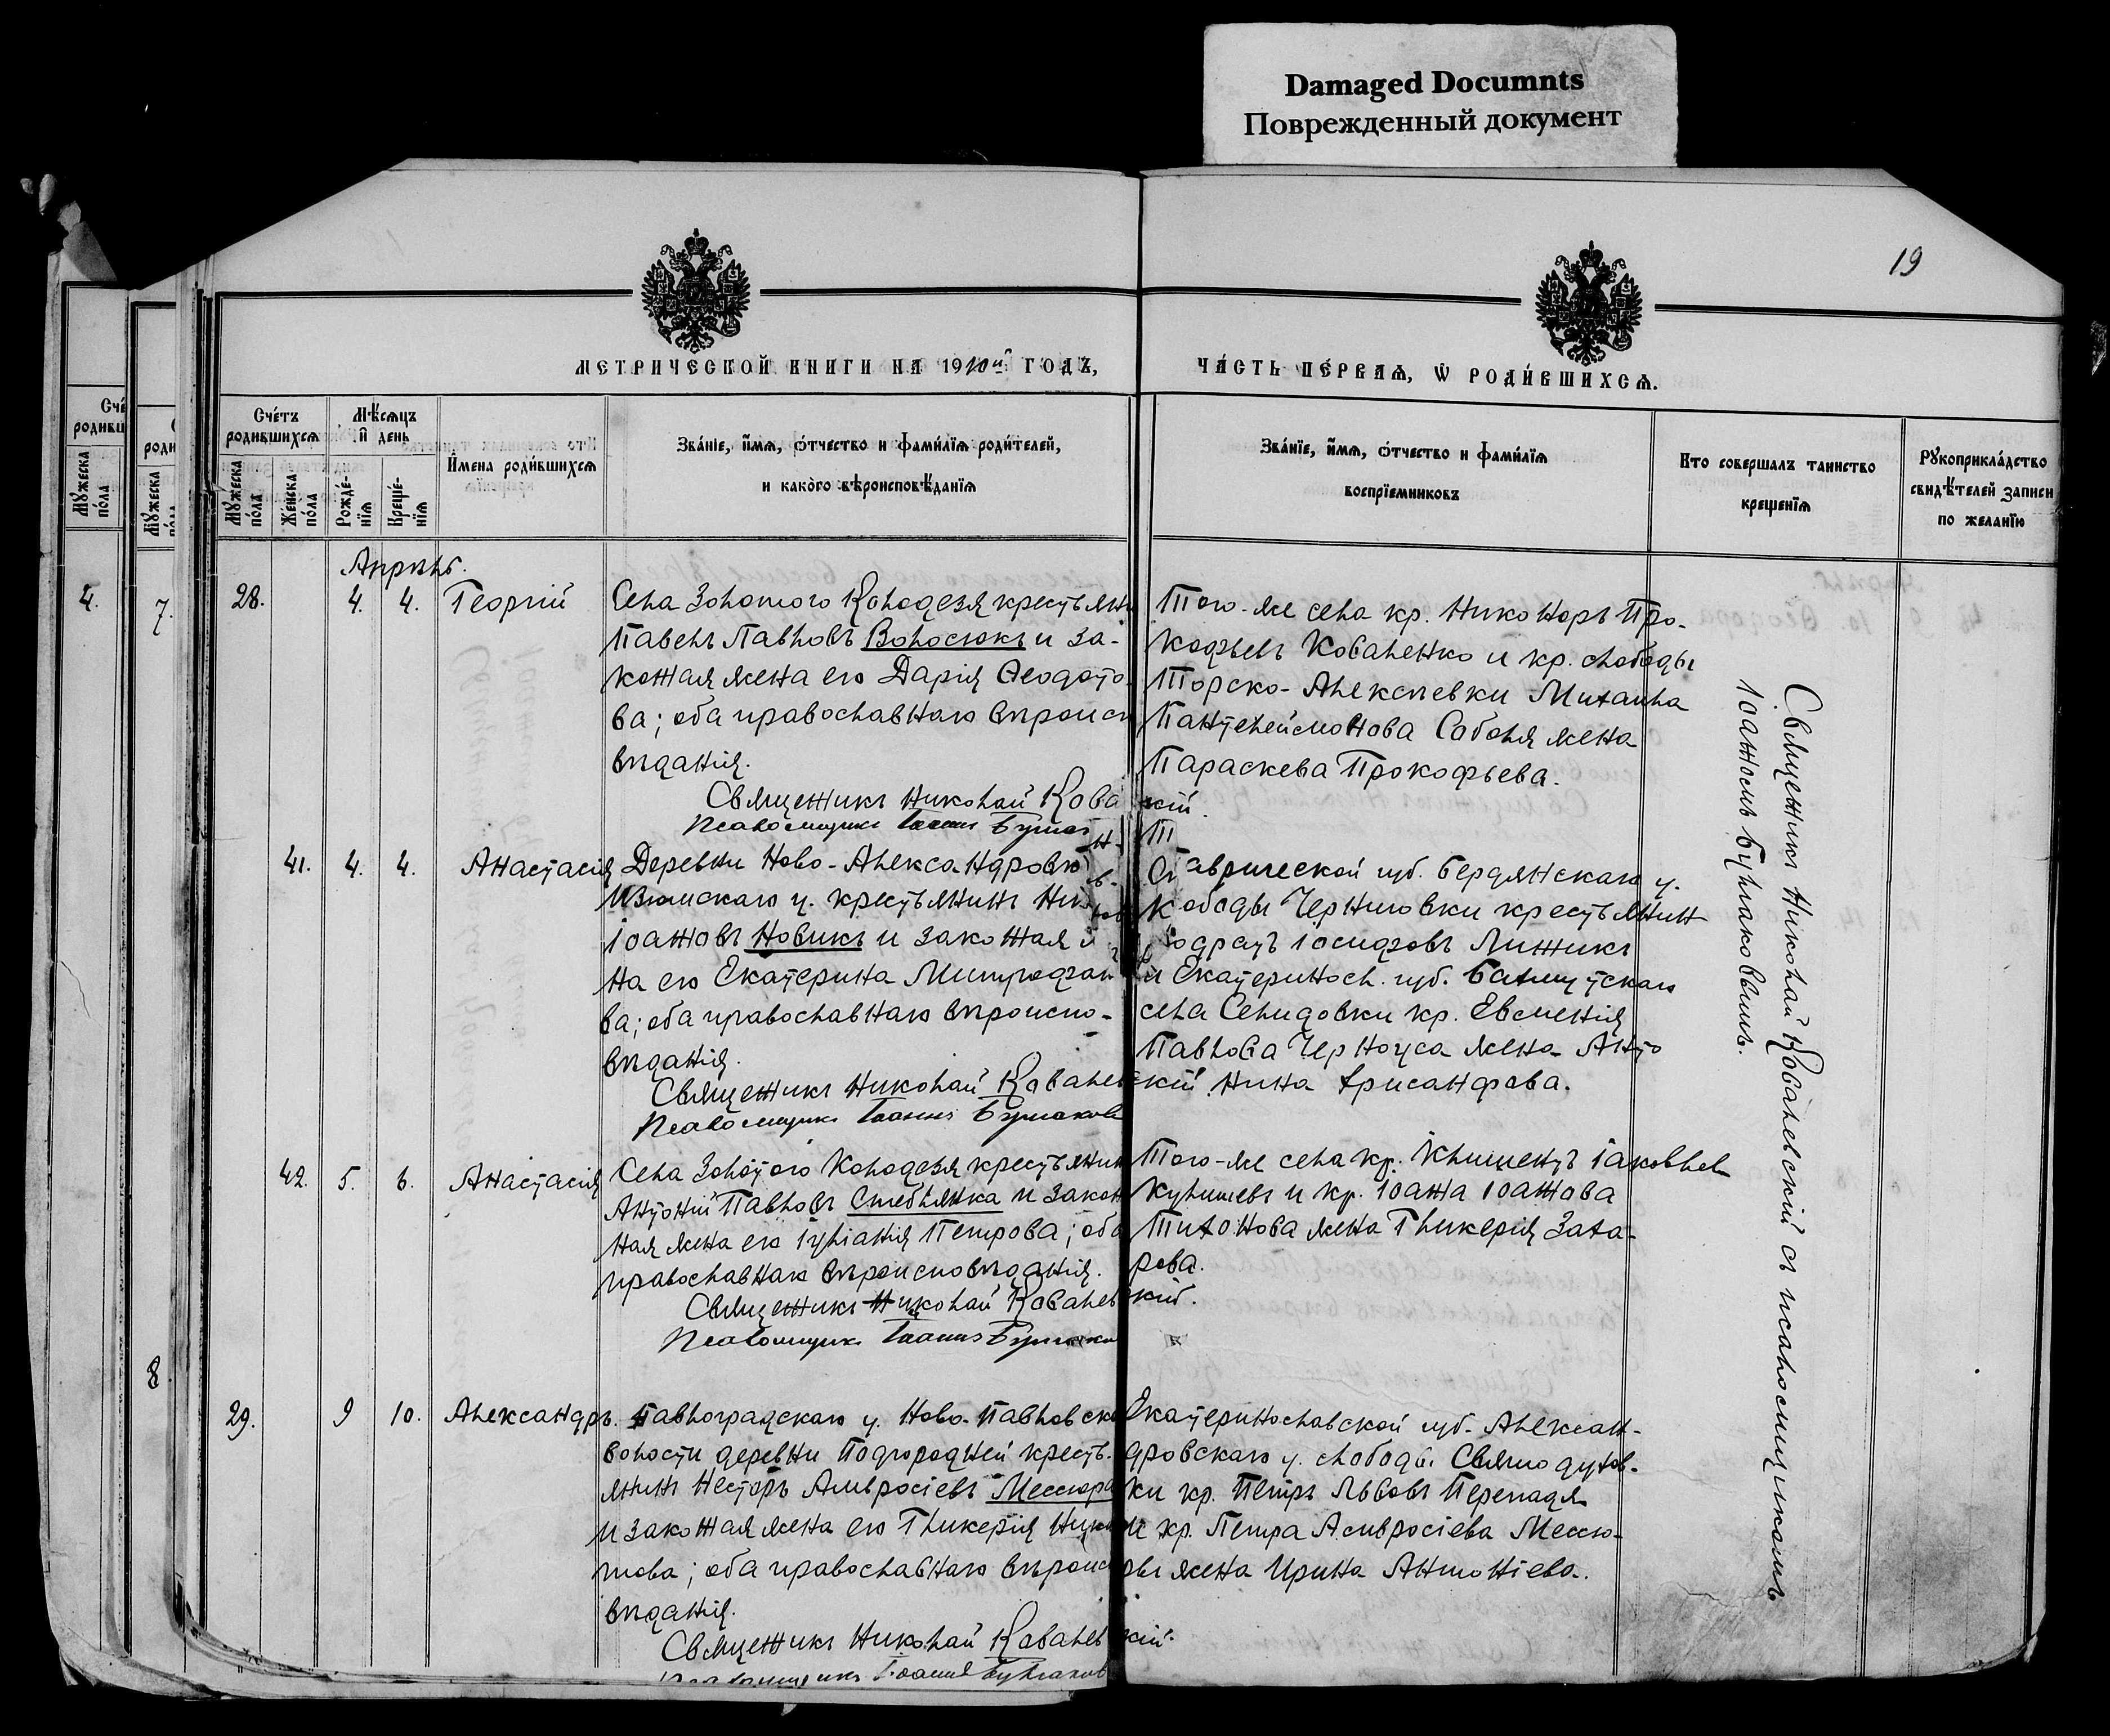 Damaged Documnts
Поврежденный документ
19
МЕТРИЧЕСКОЙ КНИГИ НА 1910й ГОДЪ,
ЧАСТЬ ПЕРВАЯ, Ѡ РОДИВШИХСЯ.
Счетъ родившихся
Мѣсяцъ и день
Мужеска пола
Женска пола
Рожденія
Крещенія
Имена родившихся
Званіе, имя, отчество и фамилія родителей,
и какого вѣроисповѣданія
Званіе, имя, отчество и фамилія
воспріемниковъ
Кто совершалъ таинство
крещенія
Рукоприкладство
свидѣтелей записи
по желанію
4.
7.
8
Апрѣль.
28. 4. 4. Георгій
Села Золотого Колодезя крестьяни
Павелъ Павловъ Волосюкъ и за-
конная жена его Дарія Ѳеодото-
ва; оба православнаго вѣроисп
вѣданія.
Священникъ Николай Кова
Псаломщикъ Іоаннъ
Того-же села кр. Никоноръ Про-
кофьевъ Коваленко и кр. слободы
Торско-Алексѣевки Михаила
Пантелеймонова Соболя жена
Параскева Прокофьева.
кій.
41. 4. 4. Анастасія
Деревни Ново-Александровк
Изюмскаго у. крестьянинъ
Іоанновъ Новикъ и законная
на его Екатерина Митрофан
ва; оба православнаго вѣроиспо-
вѣданія.
Священникъ Николай Ковалев
Псаломщикъ Іоаннъ Булаков
аврической губ. Бердянскаго у.
ободы Черниговки крестьянин
Іосифовъ Линникъ
и Екатеринос. губ. Бахмутскаго
села Селидовки кр. Евмения
Павлова Черноуса жена Анто
нина Хрисанфова.
скій
42. 5. 6. Анастасія
Села Золотого Колодезя крестьянин
Антоній Павловъ Стеблянка и закон
ная жена его Іуліанія Петрова; оба
православнаго вѣроисповѣданія.
Священникъ Николай Ковалев
Псаломщикъ Іоаннъ
Того-же села кр. Климентъ Іаковлев
Кулишевъ и кр. Іоанна Іоаннова
Тихонова жена Гликерія Заха-
рова.
скій.
29. 9 10. Александръ.
Павлоградскаго у. Ново-Павловско
волости деревни Подгородней кресть-
янинъ Несторъ Амвросіевъ Мессюра
и законная жена его Гликерія Ники
това; оба православнаго вѣроис
вѣданія.
Священникъ Николай Ковалев
Псаломщикъ Іоаннъ Булаков
Екатеринославской губ. Алексан-
дровскаго у. слободы Святодухов-
ки кр. Петръ Львовъ Перепадя
и кр. Петра Амвросіева Мессю-
ры жена Ирина Антоніева.
скій.
Священникъ Николай Ковалевскій съ псаломщикомъ
Іоанномъ Булаковымъ.